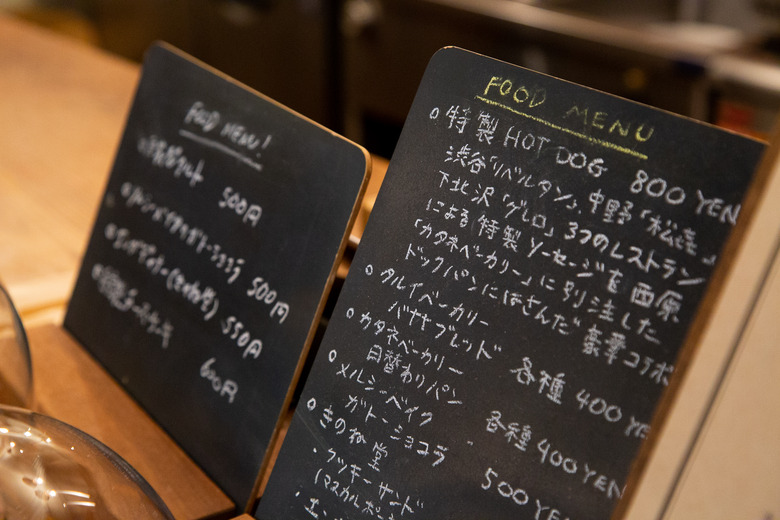 FOOD MENU!
500円
500円
550円
600円
FOOD MENU
特製 HOT DOG 800 YEN
渋谷「リベルタン」、中野「松㐂」
下北沢「ゲレロ」3つのレストラン
による特製ソーセージを西原
「カタネベーカリー」に別注した
ドックパンにはさんだ豪華コラボ
タルイベーカリー
バナナブレッド 各種 400 YE
カタネベーカリー
日替わりパン 各種 400 YEN
メルシーベイク
ガトーショコラ 500 YEN
きのね堂
・クッキーサンド
(マスカルポー